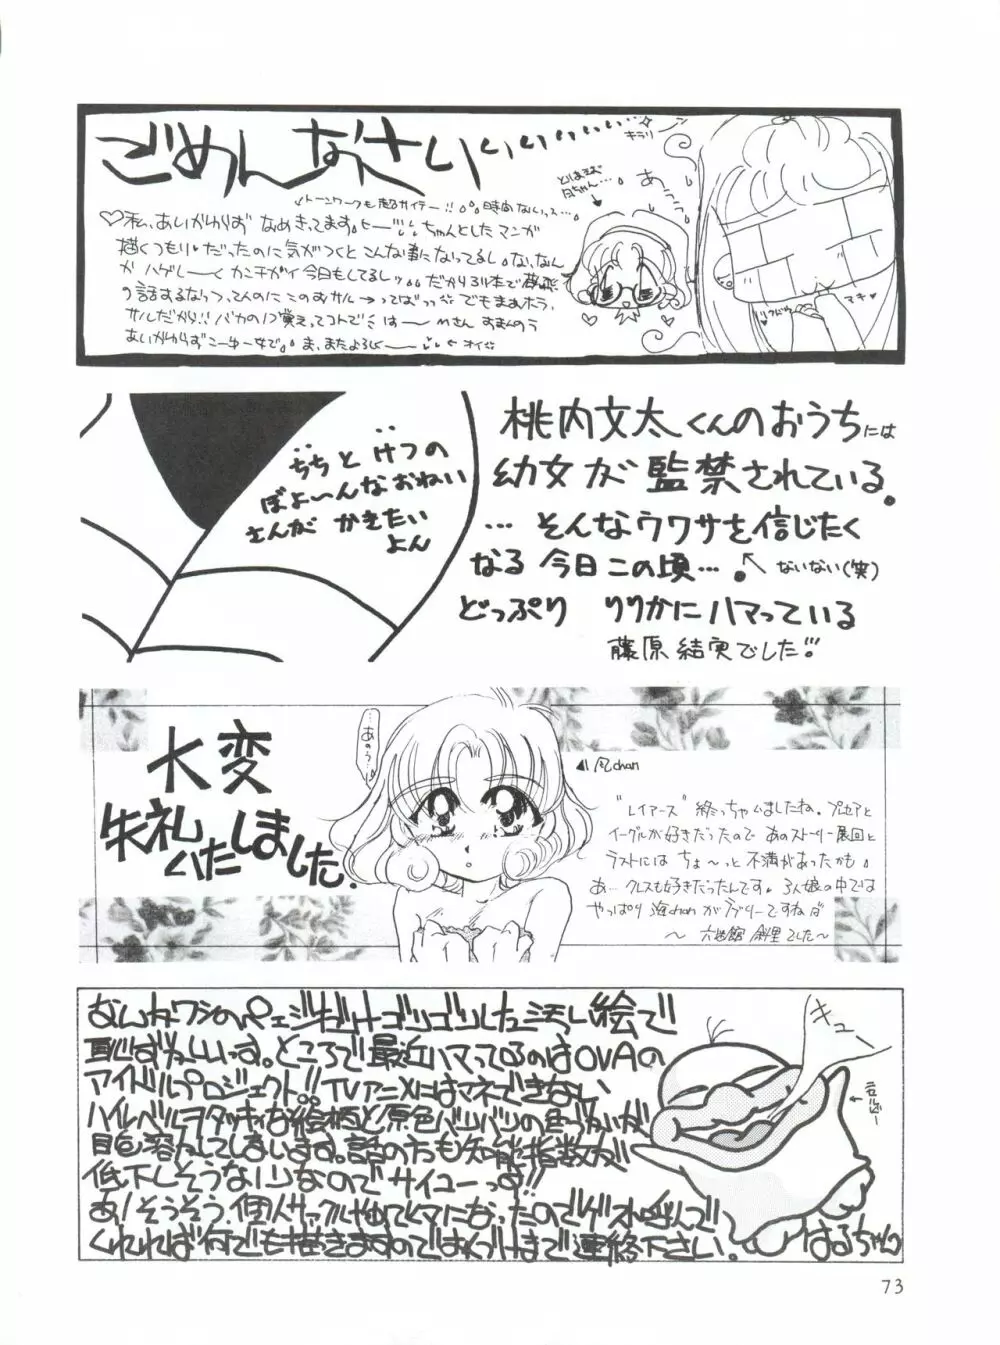 ごめんなさいいいいい……
キラリ
とりあえず
あうっ
♡私、あいかわらず なめきってます。
描くつもりだったのに気がつくと こんな事になってるし。な、なんか
ハゲし〜く カンチガイ 今日もしてるしッ。
でもまぁホラ、
サルだから!! バカの1つ覚えってコトで
は〜 Mさん すまんのう
あいかわらずこーゆー女で。ま、またよろし〜 ← オイ
マキ
ちちと けつの
ぼよ〜んなおねい
さんが かきたい
よん
桃内文太くんのおうちには
幼女が監禁されている。
…そんなウワサを信じたく
なる 今日この頃…。 ←ないない(笑)
どっぷり りりかにハマっている
藤原 結実でした!!
大変
失礼
いたしました。
…あのう…
◀風chan
"レイアース" 終っちゃいましたね。プセアと
イーグルが好きだったので あのストーリー展開と
ラストには ちょ〜っと 不満があったかも。
あ… クレフも好きだったんです。3人娘の中では
やっぱり 海chanがラブリーですねぇ
〜 六地館 斜里でした〜
なんかワシのページだけゴツゴツした 汚い絵で
恥ずかしいっす。ところで最近ハマってるのはOVAの
アイドルプロジェクト!! TVアニメにはマネできない
ハイレベルヲタッキィな絵柄と原色バツバツの色づかいが
目を溶かしてしまいます。話の方も知能指数が
低下しそうないいノリなのでサイコーっす!!
あ! そうそう、個人サークルやめてヒマになったのでゲスト呼んで
くれれば何でも描きますのではるづけまで連絡下さい。
キュー
はるちゃん
73